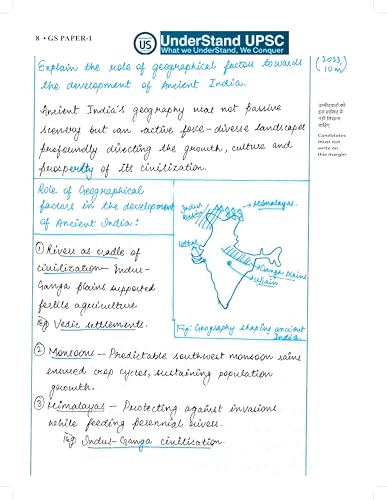 8 • GS PAPER-1
US
UnderStand UPSC
What we UnderStand, We Conquer
Explain the role of geographical factors towards
the development of Ancient India.
(2023,
10 m)
उम्मीदवारों को
इस हाशिए में
नहीं लिखना
चाहिए
Candidates
must not
write on
this margin
Ancient India's geography was not passive
scenery but an active force - diverse landscapes
profoundly directing the growth, culture and
prosperity of its civilization.
Role of Geographical
factors in the development
of Ancient India:
① Rivers as cradle of
civilization - Indus-
Ganga plains supported
fertile agriculture
Eg) Vedic settlements.
Indus
Himalayas
Lothal
Ganga plains
Ujjain
Fig: Geography shaping ancient
India
② Monsoons - Predictable southwest monsoon rains
ensured crop cycles, sustaining population
growth.
③ Himalayas - Protecting against invasions
while feeding perennial rivers.
Eg) Indus-Ganga civilisation.